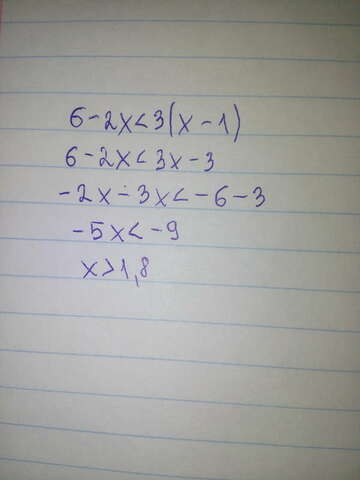 6-2x<3(x-1)
6-2x<3x-3
-2x-3x<-6-3
-5x<-9
x>1,8